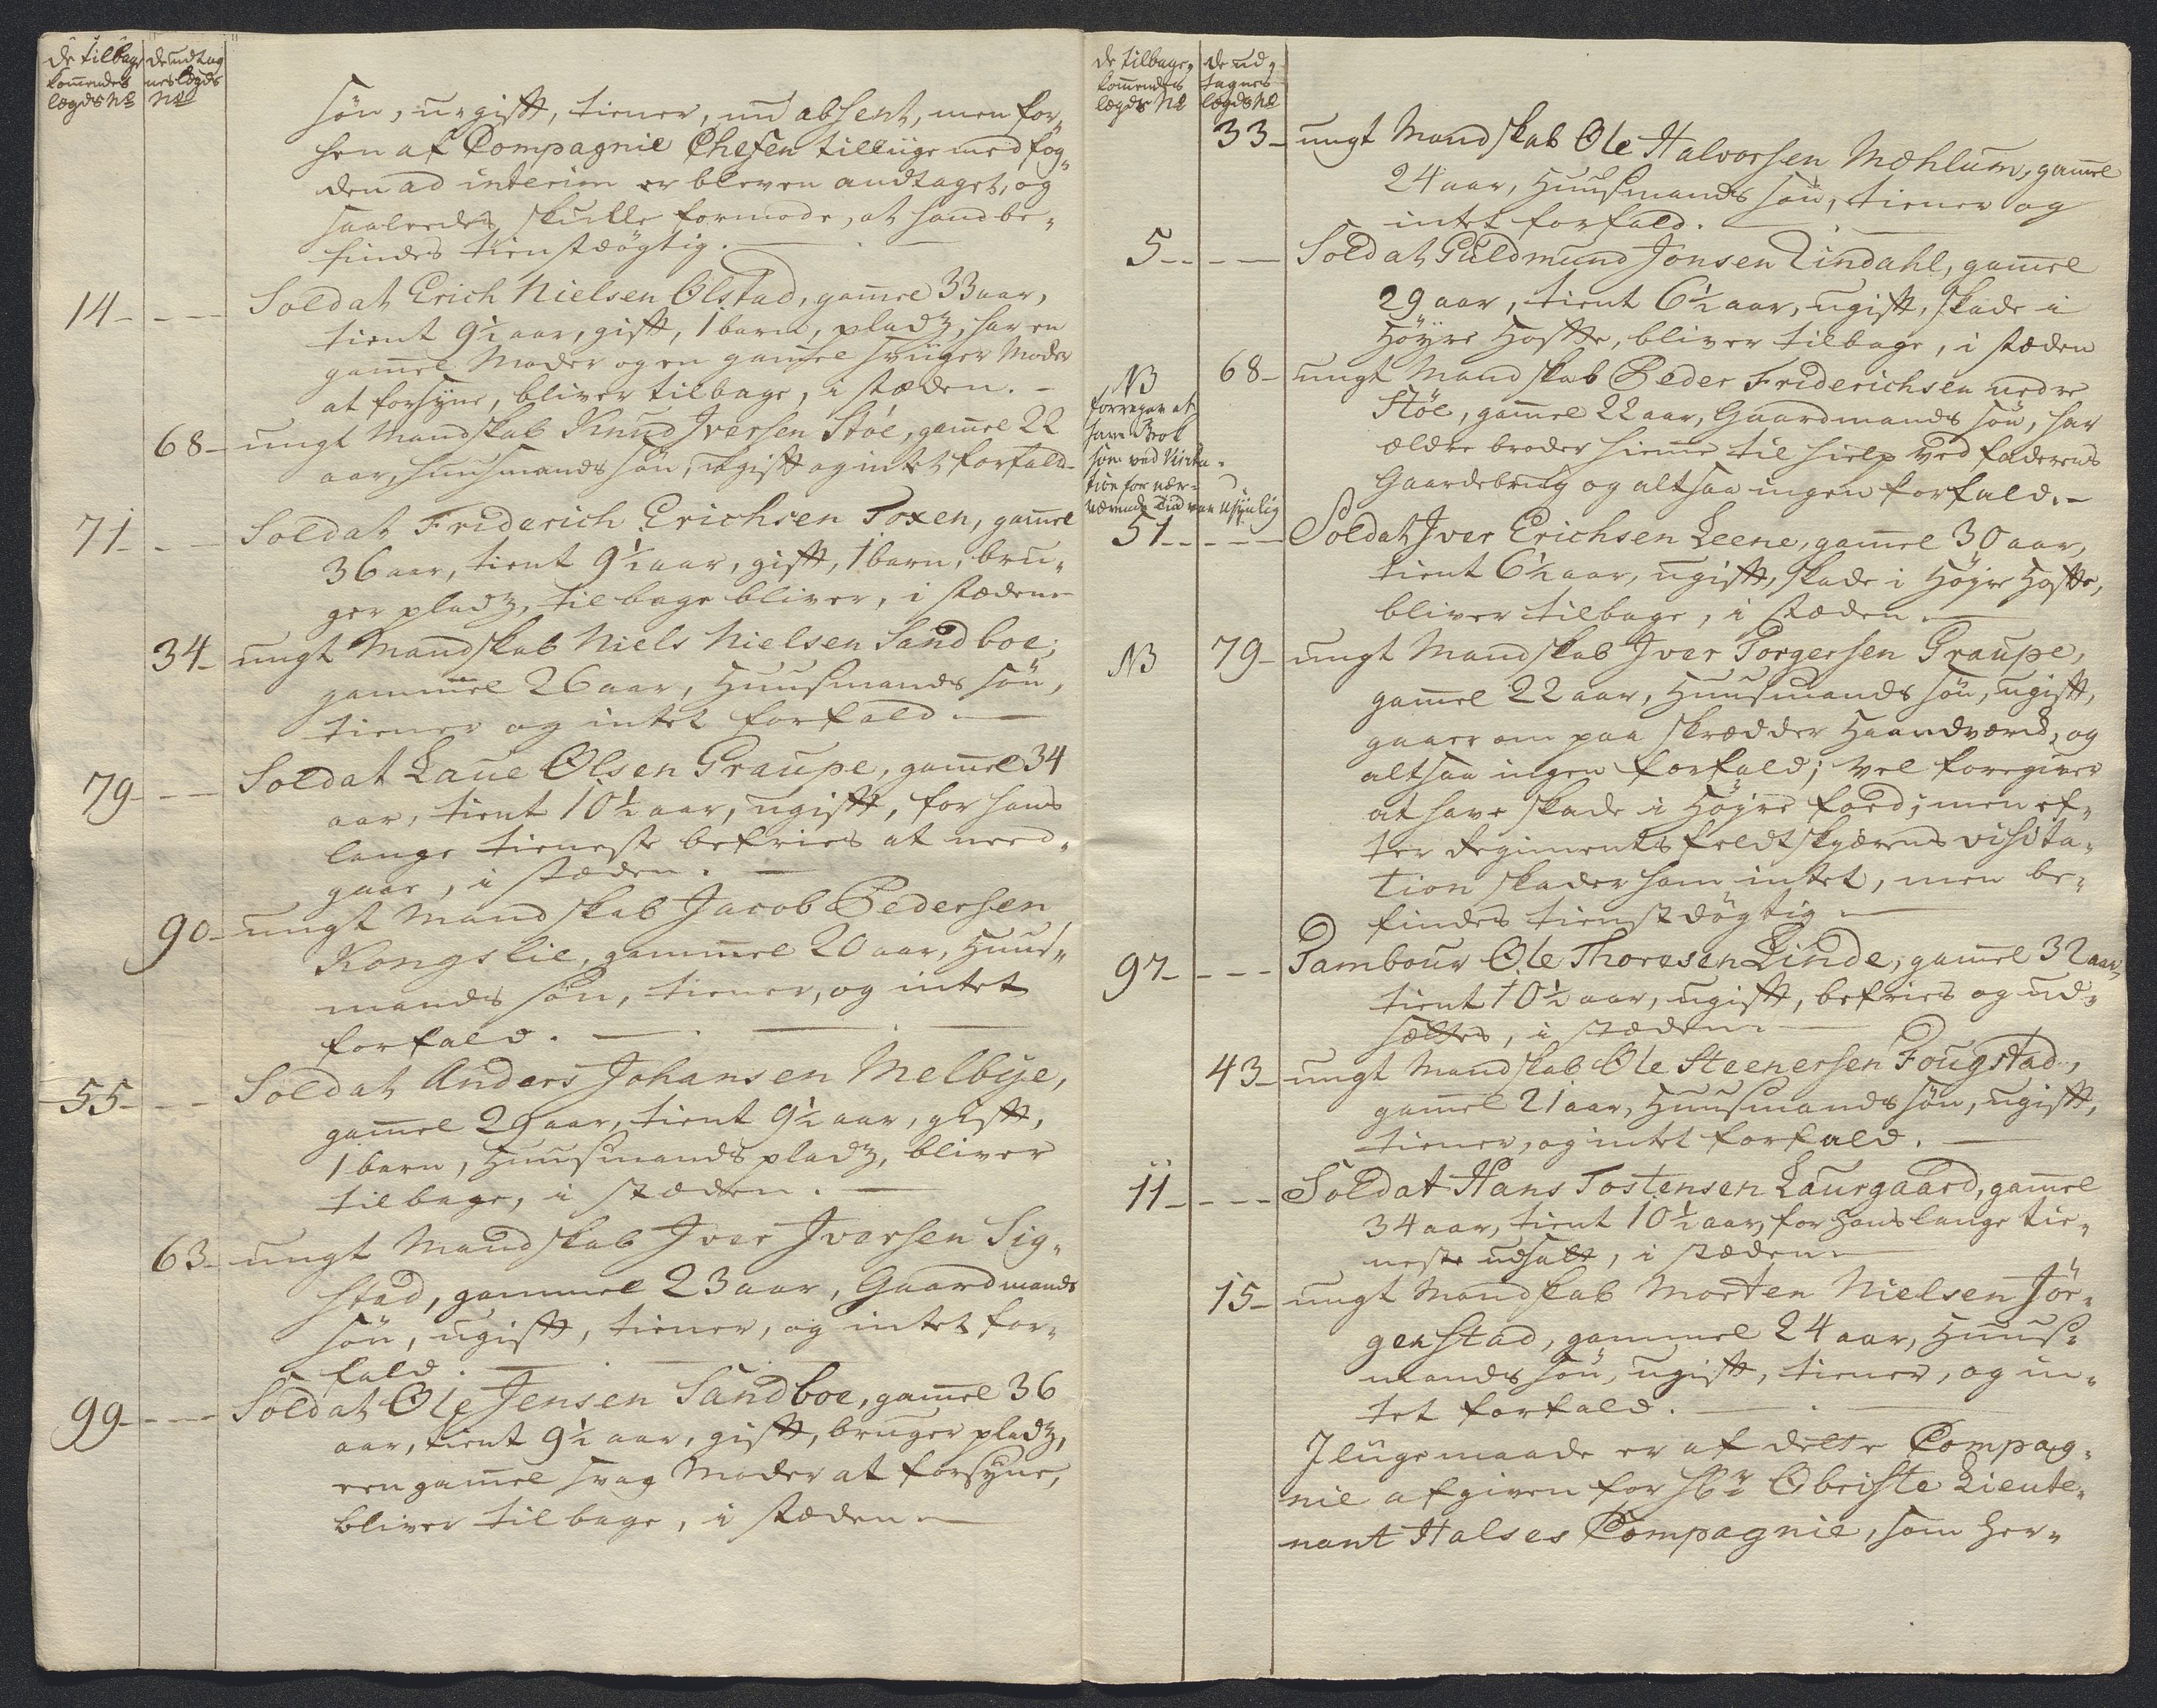 de tilbage
kom̄endes
lægds No
de udtag
nes lægds
No
søn, ugift, tiener, nu absent, men for¬
hen af Compagnie Chefen tilliige med fog¬
den ad interim er bleven andtaget, og
saaleedes skulle formode, at hand be¬
findes tienstdögtig.
14 - - - Soldat Erich Nielsen Olstad, gam̄el 33 aar,
tient 9½ aar, gift, 1 barn, pladz, har en
gam̄el Moder og en gam̄el Moder
at forsyne, bliver tilbage, i stæden. -
68 - ungt Mandskab Knud Iversen Stöe, gam̄el 22
aar, huusmands søn, ugift og intet forfald -
71 - - - Soldat Friderich Erichsen Toxen, gam̄el
36 aar, tient 9½ aar, gift, 1 barn, bru¬
ger pladz, tilbage bliver, i stædene
34 - ungt Mandskab Niels Nielsen Sandboe,
gammel 26 aar, Huusmands søn,
tiener og intet forfald. -
79 - - - Soldat Laue Olsen Graupe, gam̄el 34
aar, tient 10½ aar, ugift, for hans
lange tieneste befries at need¬
gaae, i stæden. -
90 - ungt Mandskab Jacob Pedersen
Kongslie, gammel 20 aar, Huus¬
mands søn, tiener, og intet
forfald. -
55 - - - Soldat Anders Johansen Melbye,
gam̄el 29 aar, tient 9½ aar, gift,
1 barn, Huusmands pladz, bliver
tilbage, i stæden. -
63 - ungt Mandskab Iver Iversen Sig¬
stad, gammel 23 aar, Gaardmands
søn, ugift, tiener, og intet for¬
fald.
99 - - - Soldat Ole Jensen Sandboe, gam̄el 36
aar, tient 9½ aar, gift, bruger pladz,
een gam̄el svag Moder at forsyne,
bliver tilbage, i stæden -
de tilbage,
kom̄endes
lægds No
de ud,
tagnes
lægds No
33 - ungt Mandskab Ole Halvorsen Mæhlum, gam̄el
24 aar, Huusmands søn, tiener og
intet forfald.
5 - - - Soldat Guldmund Jonsen Lindahl, gam̄el
29 aar, tient 6½ aar, ugift, skade i
Höyre Hofte, bliver tilbage, i stæden
NB
foregav at
have Brok
som ved Visita¬
tion for nær¬
værende Tid var usynlig
68 - ungt Mandskab Peder Friderichsen nedre
Stöe, gam̄el 22 aar, Gaardmands søn, har
ældre broder hieme til hielp ved faderens
Gaardebrug og altsaa ingen forfald. -
51 - - - Soldat Iver Erichsen Leene, gam̄el 30 aar,
tient 6½ aar, ugift, skade i Höyre Hofte,
bliver tilbage, i stæden. -
NB 79 - ungt Mandskab Iver Torgersen Graupe,
gam̄el 22 aar, Huusmands søn, ugift,
gaaer om paa skrædder Haandværk, og
altsaa ingen forfald; vel foregiver
at have skade i Höyre foed; men ef¬
ter Regiments feldtskjærens visita¬
tion skader ham intet, men be¬
findes tienstdögtig -
97 - - - Tambour Ole Thoresen Linde, gam̄el 32 aar,
tient 10½ aar, ugift, befries og ud¬
sættes, i stæden. -
43 - ungt Mandskab Ole Steenersen Fougstad,
gam̄el 21 aar, Huusmands søn, ugift,
tiener, og intet forfald. -
11 - - - Soldat Hans Tostensen Laurgaard, gam̄el
34 aar, tient 10½ aar, for hans lange tie¬
neste udsatt, i stæden -
15 - ungt Mandskab Morten Nielsen Jör¬
genstad, gammel 24 aar, Huus¬
mands søn, ugift, tiener, og in¬
tet forfald. -
Iligemaade er af dette Compag¬
nie afgiven for Hr Obriste Lieute¬
nant Halses Compagnie, som her¬